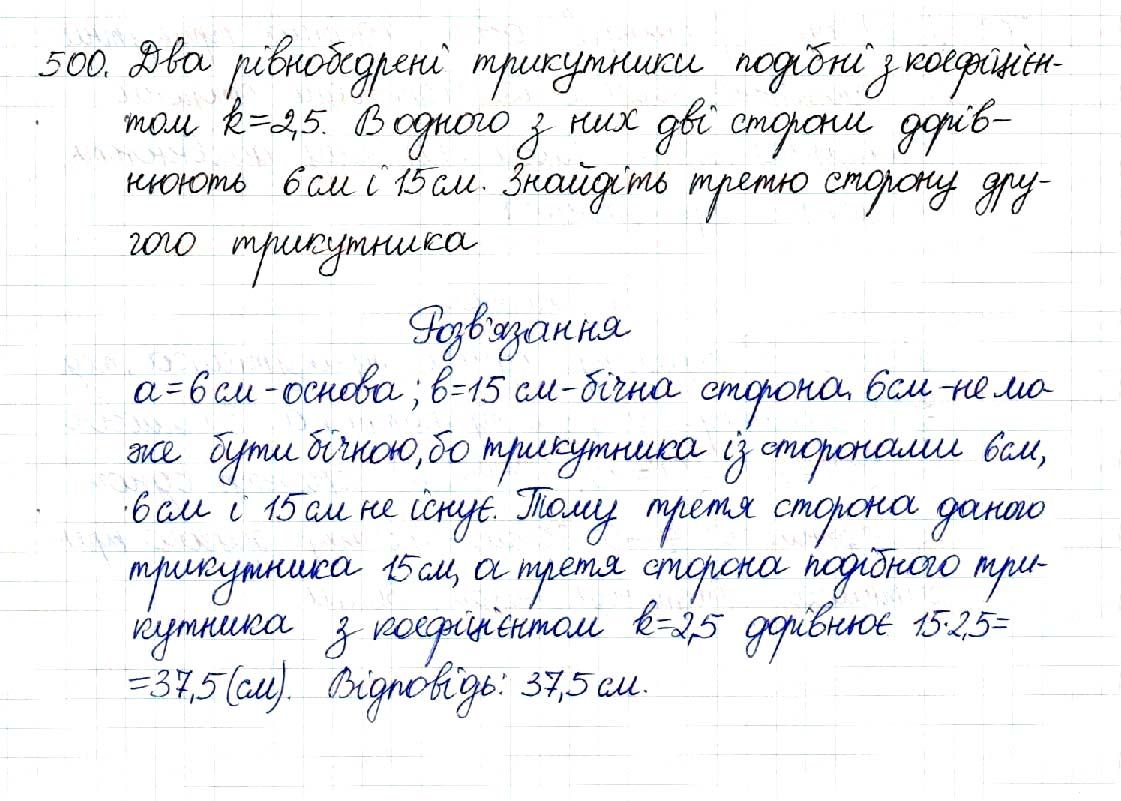 500. Два рівнобедрені трикутники подібні з коефіцієн-
том k=2,5. В одного з них дві сторони дорів-
нюють 6 см і 15 см. Знайдіть третю сторону дру-
гого трикутника
Розв'язання
a=6 см - основа; b=15 см - бічна сторона. 6см - не мо
же бути бічною, бо трикутника із сторонами 6см,
6 см і 15 см не існує. Тому третя сторона даного
трикутника 15 см, а третя сторона подібного три-
кутника з коефіцієнтом k=2,5 дорівнює 15·2,5=
=37,5 (см). Відповідь: 37,5 см.